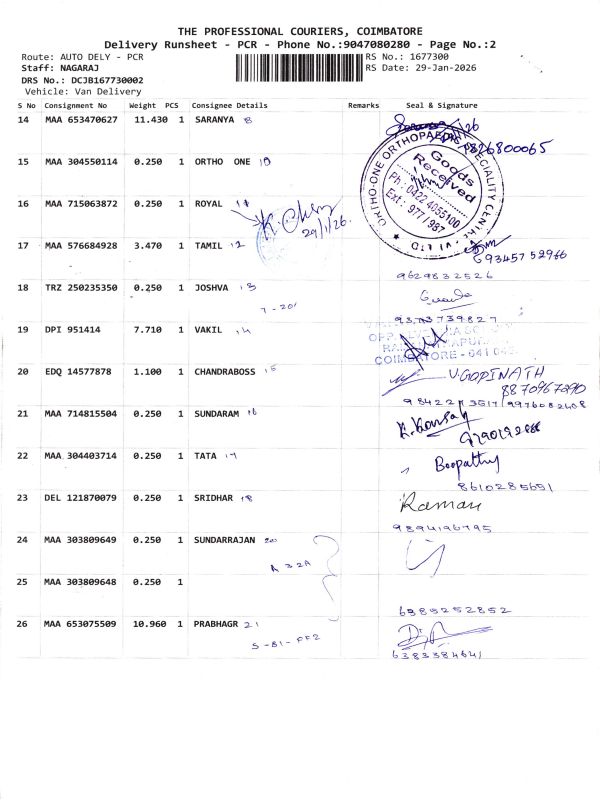 THE PROFESSIONAL COURIERS, COIMBATORE
Delivery Runsheet - PCR - Phone No.:9047080280 - Page No.:2
Route: AUTO DELY - PCR
RS No.: 1677300
Staff: NAGARAJ
RS Date: 29-Jan-2026
DRS No.: DCJB167730002
Vehicle: Van Delivery
S No Consignment No Weight PCS Consignee Details Remarks Seal & Signature
14 MAA 653470627 11.430 1 SARANYA 8
9826800065
15 MAA 304550114 0.250 1 ORTHO ONE 10
ORTHO-ONE ORTHOPAEDIC SPECIALITY CENTRE
Goods
Received
Ph : 0422 4055100
Ext : 977 / 987
16 MAA 715063872 0.250 1 ROYAL 11
29/1/26
17 MAA 576684928 3.470 1 TAMIL 12
9629832526
18 TRZ 250235350 0.250 1 JOSHVA 13
7-201
9373739827
19 DPI 951414 7.710 1 VAKIL 14
COIMBATORE - 641 045
20 EDQ 14577878 1.100 1 CHANDRABOSS 15
V.GOPINATH
8870967290
21 MAA 714815504 0.250 1 SUNDARAM 16
22 MAA 304403714 0.250 1 TATA 17
Boopathy
8610285651
23 DEL 121870079 0.250 1 SRIDHAR 18
Raman
9894196795
24 MAA 303809649 0.250 1 SUNDARRAJAN 20
A 32A
25 MAA 303809648 0.250 1
6385252852
26 MAA 653075509 10.960 1 PRABHAGR 21
S-B1-FF2
6383384641